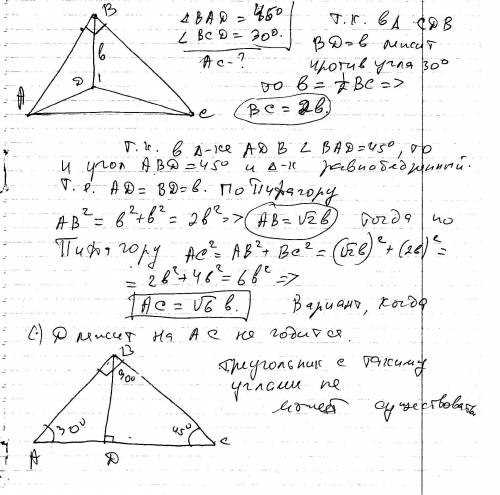 B
∠BAD = 45°
∠BCD = 30°
AC - ?
Т.к. в Δ CDB
BD = в лежит
против угла 30°
то в = ½ BC =>
BC = 2в.
в
D
A
C
Т.к. в Δ-ке ADB ∠BAD = 45°, то
и угол ABD = 45° и Δ-к равнобедренный.
Т.е. AD = BD = в. По Пифагору
AB² = в² + в² = 2в² => AB = √2в тогда по
Пифагору AC² = AB² + BC² = (√2в)² + (2в)² =
= 2в² + 4в² = 6в² =>
AC = √6 в. Вариант, когда
(·) D лежит на AC не годится.
B
90°
треугольник с такими
углами не
может существовать
30°
45°
A
D
C